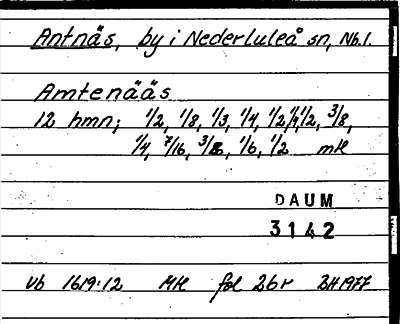 Antnäs, by i Nederluleå sn, Nb.l.
Amtenääs
12 hmn; 1/2, 1/8, 1/3, 1/4, 1/2, 1/2, 3/8,
1/4, 7/16, 3/8, 1/6, 1/2 mtl
DAUM
3142
Vb 1619:12 Mtl fol 26r BH1977